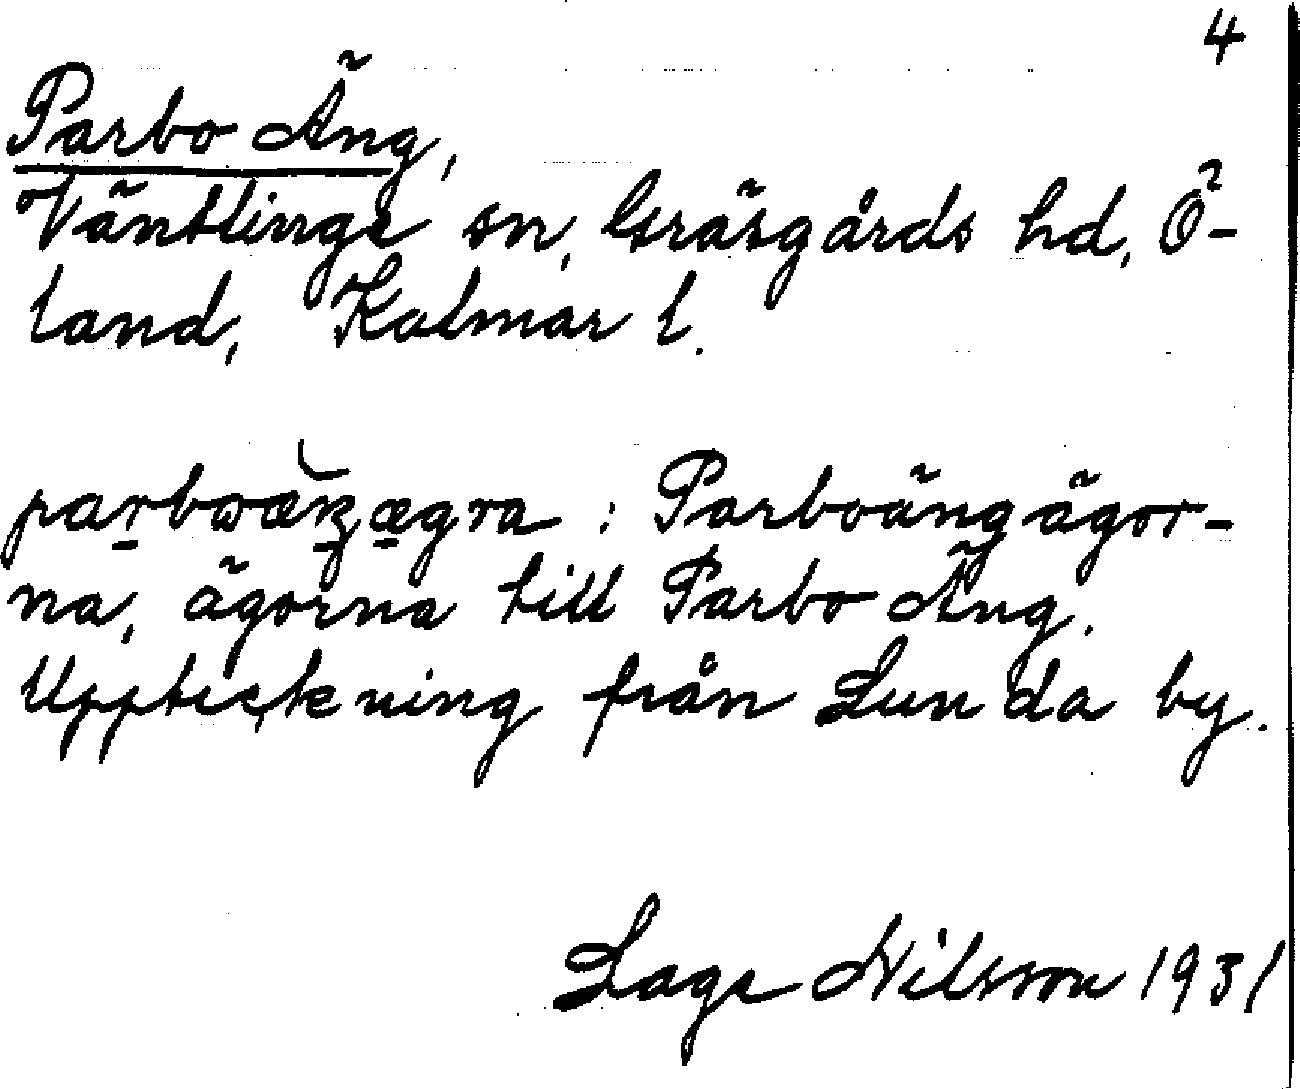 4
Parbo Äng,
Väntlinge sn, Gräsgårds hd, Ö-
land, Kalmar l.
parbωæŋægra : Parboängägor-
na, ägorna till Parbo Äng.
Uppteckning från Lunda by.
Lage Nilsson 1931